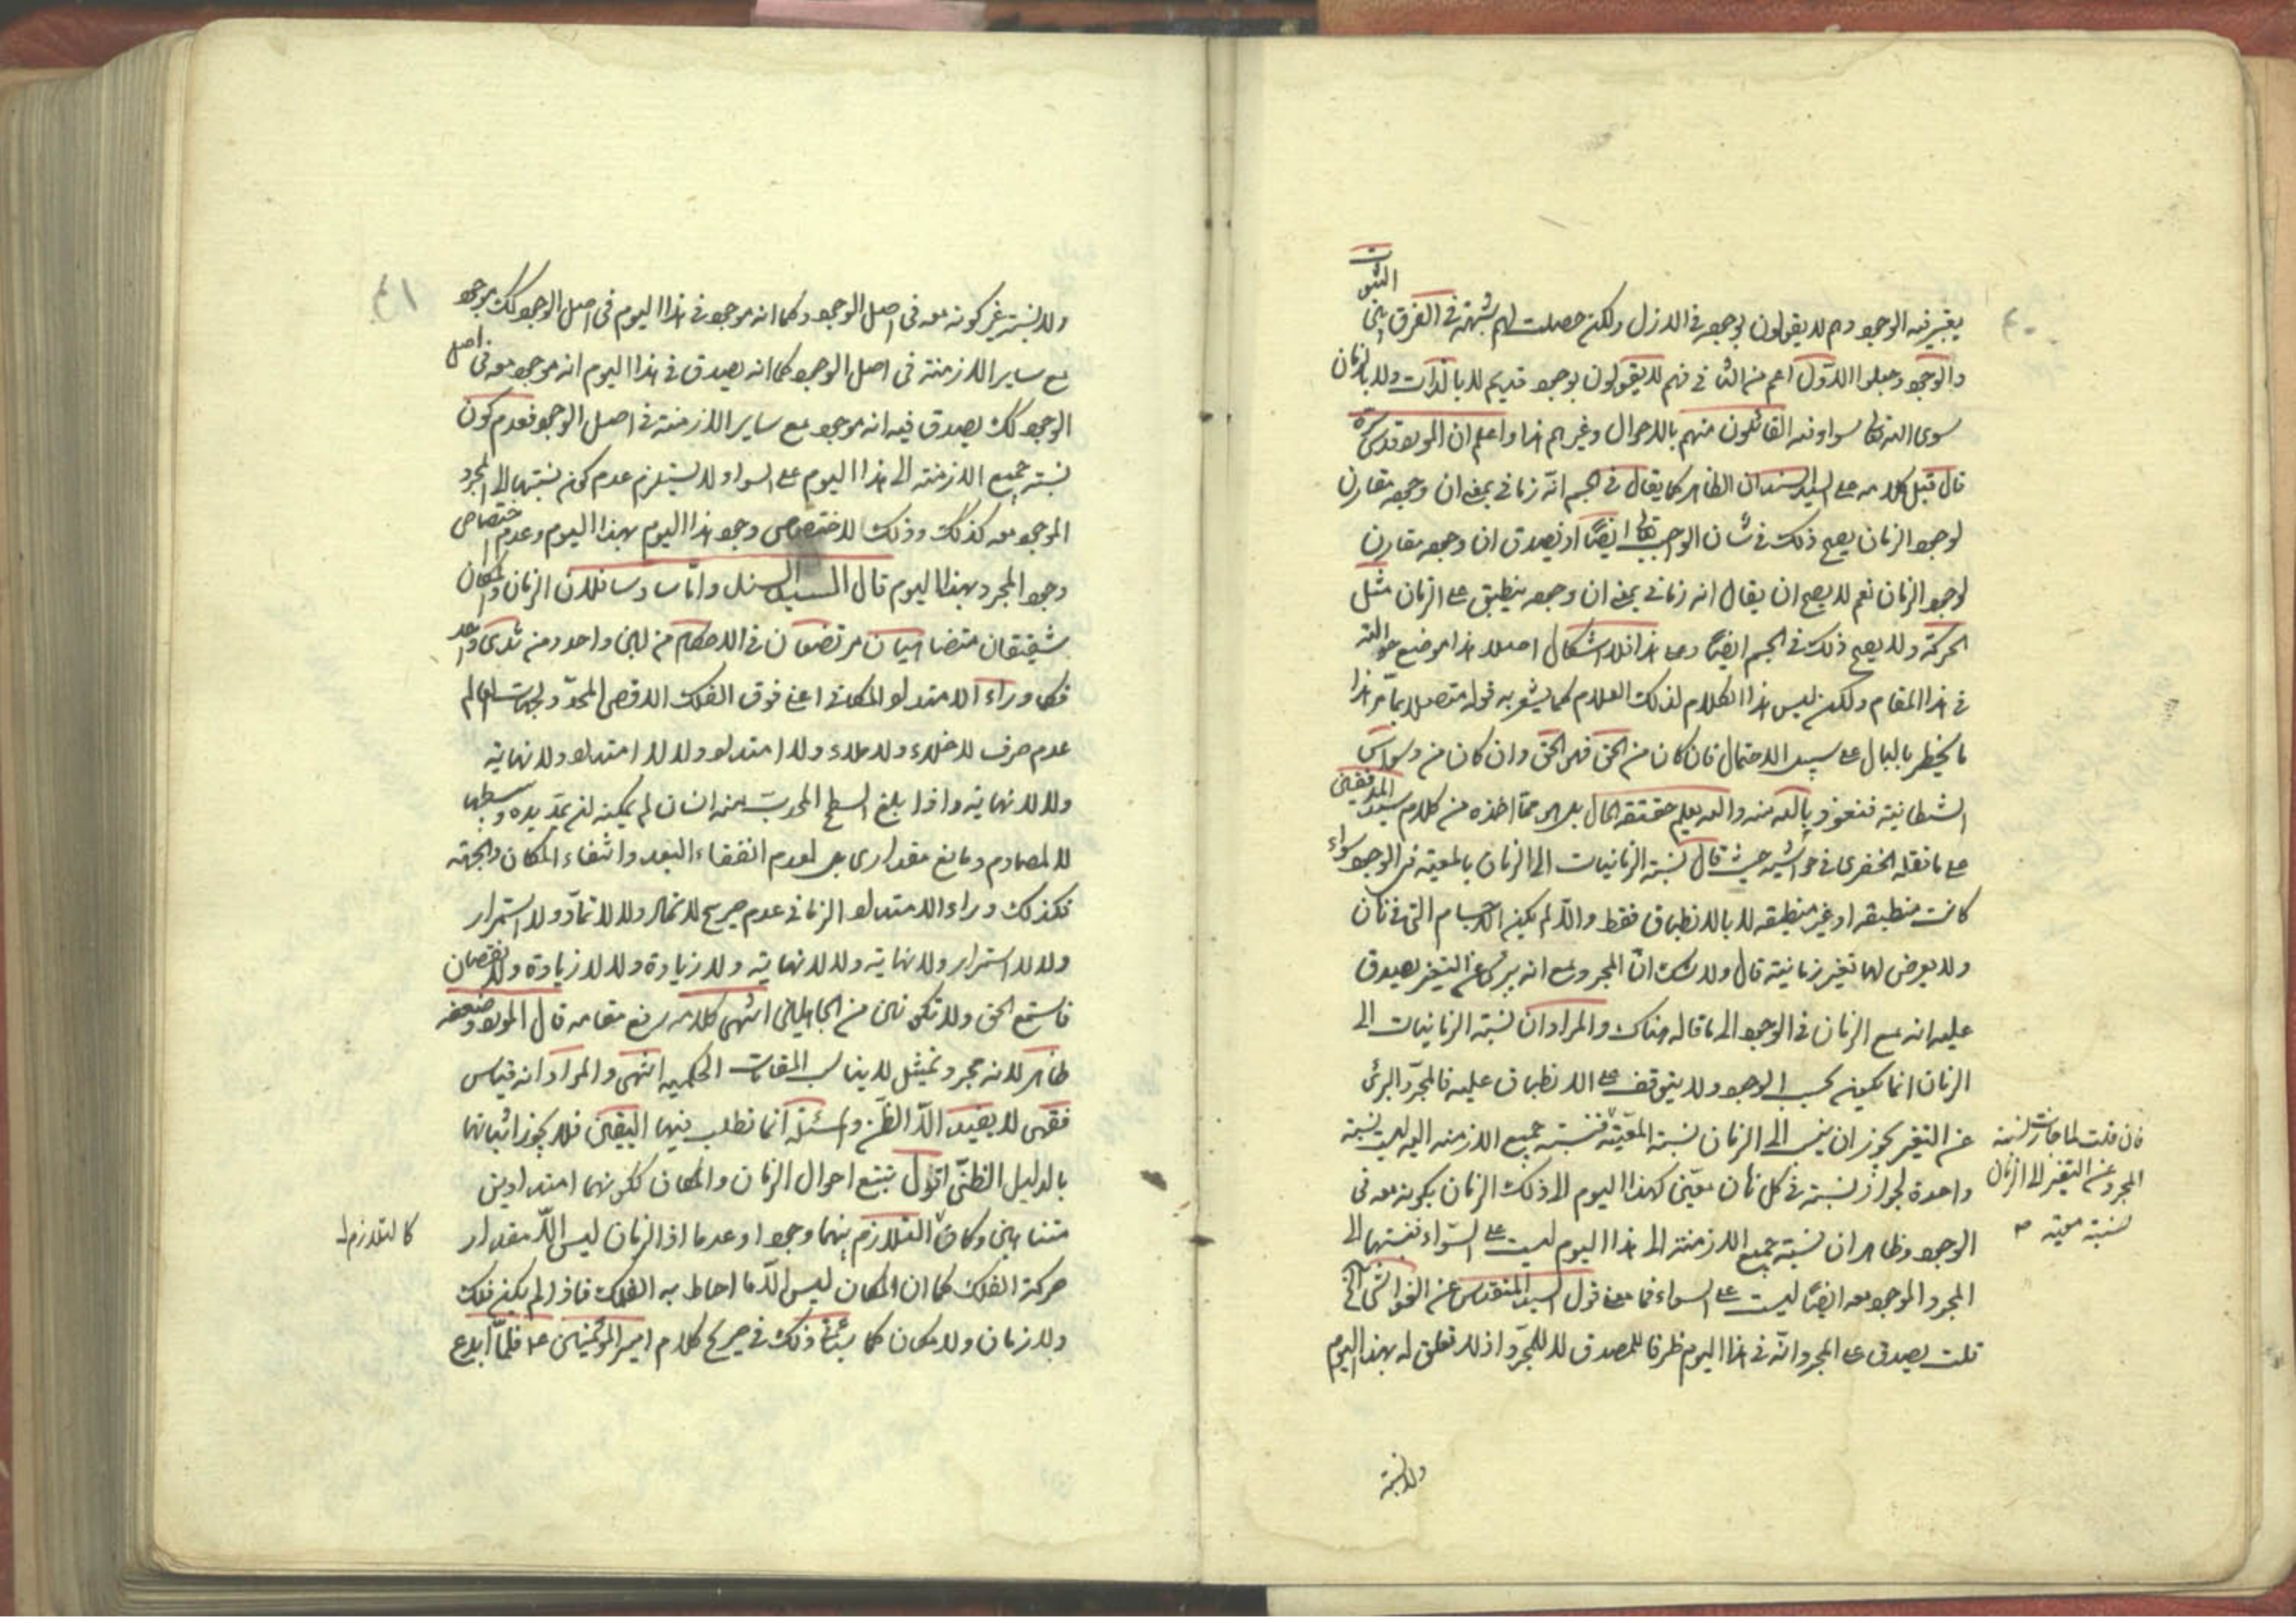 يغير فيه الوجود وهم لا يقولون بوجوده في الازل ولكن حصلت لهم شبهة في الفرق بين الثبوت
والوجود وجعلوا الاول اعم من الثاني فهم لا يقولون بوجود قديم لا بالذات ولا بالزمان
سوى الله تعالى سواء فيه القائلون منهم بالاحوال وغيرهم هذا واعلم ان المورد قدس سره
قال قبل كلامه على السيد السند ان الظاهر كما يقال في الجسم انه زماني بمعنى ان وجوده مقارن
لوجود الزمان يصح ذلك في شان الواجب تعالى ايضا اذ يصدق ان وجوده مقارن
لوجود الزمان نعم لا يصح ان يقال انه زماني بمعنى ان وجوده ينطبق على الزمان مثل
الحركة ولا يصح ذلك في الجسم ايضا وعلى هذا فلا اشكال اصلا هذا موضع حوالته
في هذا المقام ولكن ليس هذا الكلام لذلك العلام كما يشعر به قوله متصلا بما مر هذا
ما يخطر بالبال على سبيل الاحتمال فان كان من الحق فهو الحق وان كان من وسواس
الشيطانية فنعوذ بالله منه والله يعلم حقيقة الحال بل هو مما اخذه من كلام سيد المدققين
على ما نقله الخفري في حواشيه حيث قال نسبة الزمانيات الى الزمان بالمعية في الوجود سواء
كانت منطبقة او غير منطبقة لا بالانطباق فقط والا لم يكن الاجسام التي في زمان
ولا يعرض لها تغير زمانية قال ولا شك ان المجرد مع انه بريء عن التغير يصدق
عليه انه مع الزمان في الوجود الى ما قاله هناك والمراد ان نسبة الزمانيات الى
الزمان انما يكون بحسب الوجود ولا يتوقف على الانطباق عليه فالمجرد البرئ
عن التغير يجوز ان ينسب الى الزمان نسبة المعية فنسبة جميع الازمنة اليه ليست نسبة
واحدة لجواز نسبته في كل زمان معين كهذا اليوم الى ذلك الزمان بكونه معه في
الوجود وظاهر ان نسبة جميع الازمنة الى هذا اليوم ليست على السواء فنسبتها الى
المجرد الموجود معه ايضا ليست على السواء فما معنى قول السيد المتقدس عن الغواشي الخ
قلت يصدق على المجرد انه في هذا اليوم ظرفا للصدق لا للمجرد اذ لا تعلق له بهذا اليوم
فان قلت لما جازت نسبة
المجرد عن التغير الى الزمان
نسبة معية صح
ولا نسبة
٤١
ولا نسبة غير كونه معه في اصل الوجود وكما انه موجود في هذا اليوم في اصل الوجود كك موجود
مع ساير الازمنة في اصل الوجود كما انه يصدق في هذا اليوم انه موجود معه في اصل
الوجود كك يصدق فيه انه موجود مع ساير الازمنة في اصل الوجود فعدم كون
نسبة جميع الازمنة الى هذا اليوم على السواء لا يستلزم عدم كون نسبتها الى المجرد
الموجود معه كذلك وذلك لاختصاص وجود هذا اليوم بهذا اليوم وعدم اختصاص
وجود المجرد بهذا اليوم قال السيد السند واما سادسا فلان الزمان والمكان
شقيقان متضاهيان مرتضعان في الاحكام من لبن واحد ومن ثدي واحد
فكما وراء الامتداد المكاني اعني فوق الفلك الاقصى المحدد لجهات العالم
عدم صرف لا خلاء ولا ملاء ولا امتداد ولا لا امتداد ولا نهاية
ولا لا نهاية واذا بلغ السطح المحدب منه انسان لم يمكنه ان يمد يده ويبسطها
لا لمصادم ومانع مقداري بل لعدم الفضاء البعد وانتفاء المكان والجهة
فكذلك وراء الامتداد الزماني عدم صريح لا تماد ولا لا تماد ولا استمرار
ولا لا استمرار ولا نهاية ولا لا نهاية ولا زيادة ولا لا زيادة ولا نقصان
فاستمع الحق ولا تكونن من الجاهلين انتهى كلامه رفع مقامه قال المورد وضعفه
ظاهر لانه مجرد تمثيل لا يناسب المقامات الحكمية انتهى والمراد انه قياس
فقهي لا يفيد الا الظن والمسئلة انما تطلب فيها اليقين فلا يجوز اثباتها
بالدليل الظني اقول تتبع احوال الزمان والمكان ككونهما امتدادين
متناهيين وكان التلازم بينهما وجودا وعدما اذ الزمان ليس الا مقدار
حركة الفلك كما ان المكان ليس الا ما احاط به الفلك فاذا لم يكن فلك
ولا زمان ولا مكان كما ينبئ ذلك في صريح كلام امير المؤمنين ع فلما ابدع
كالتلازم